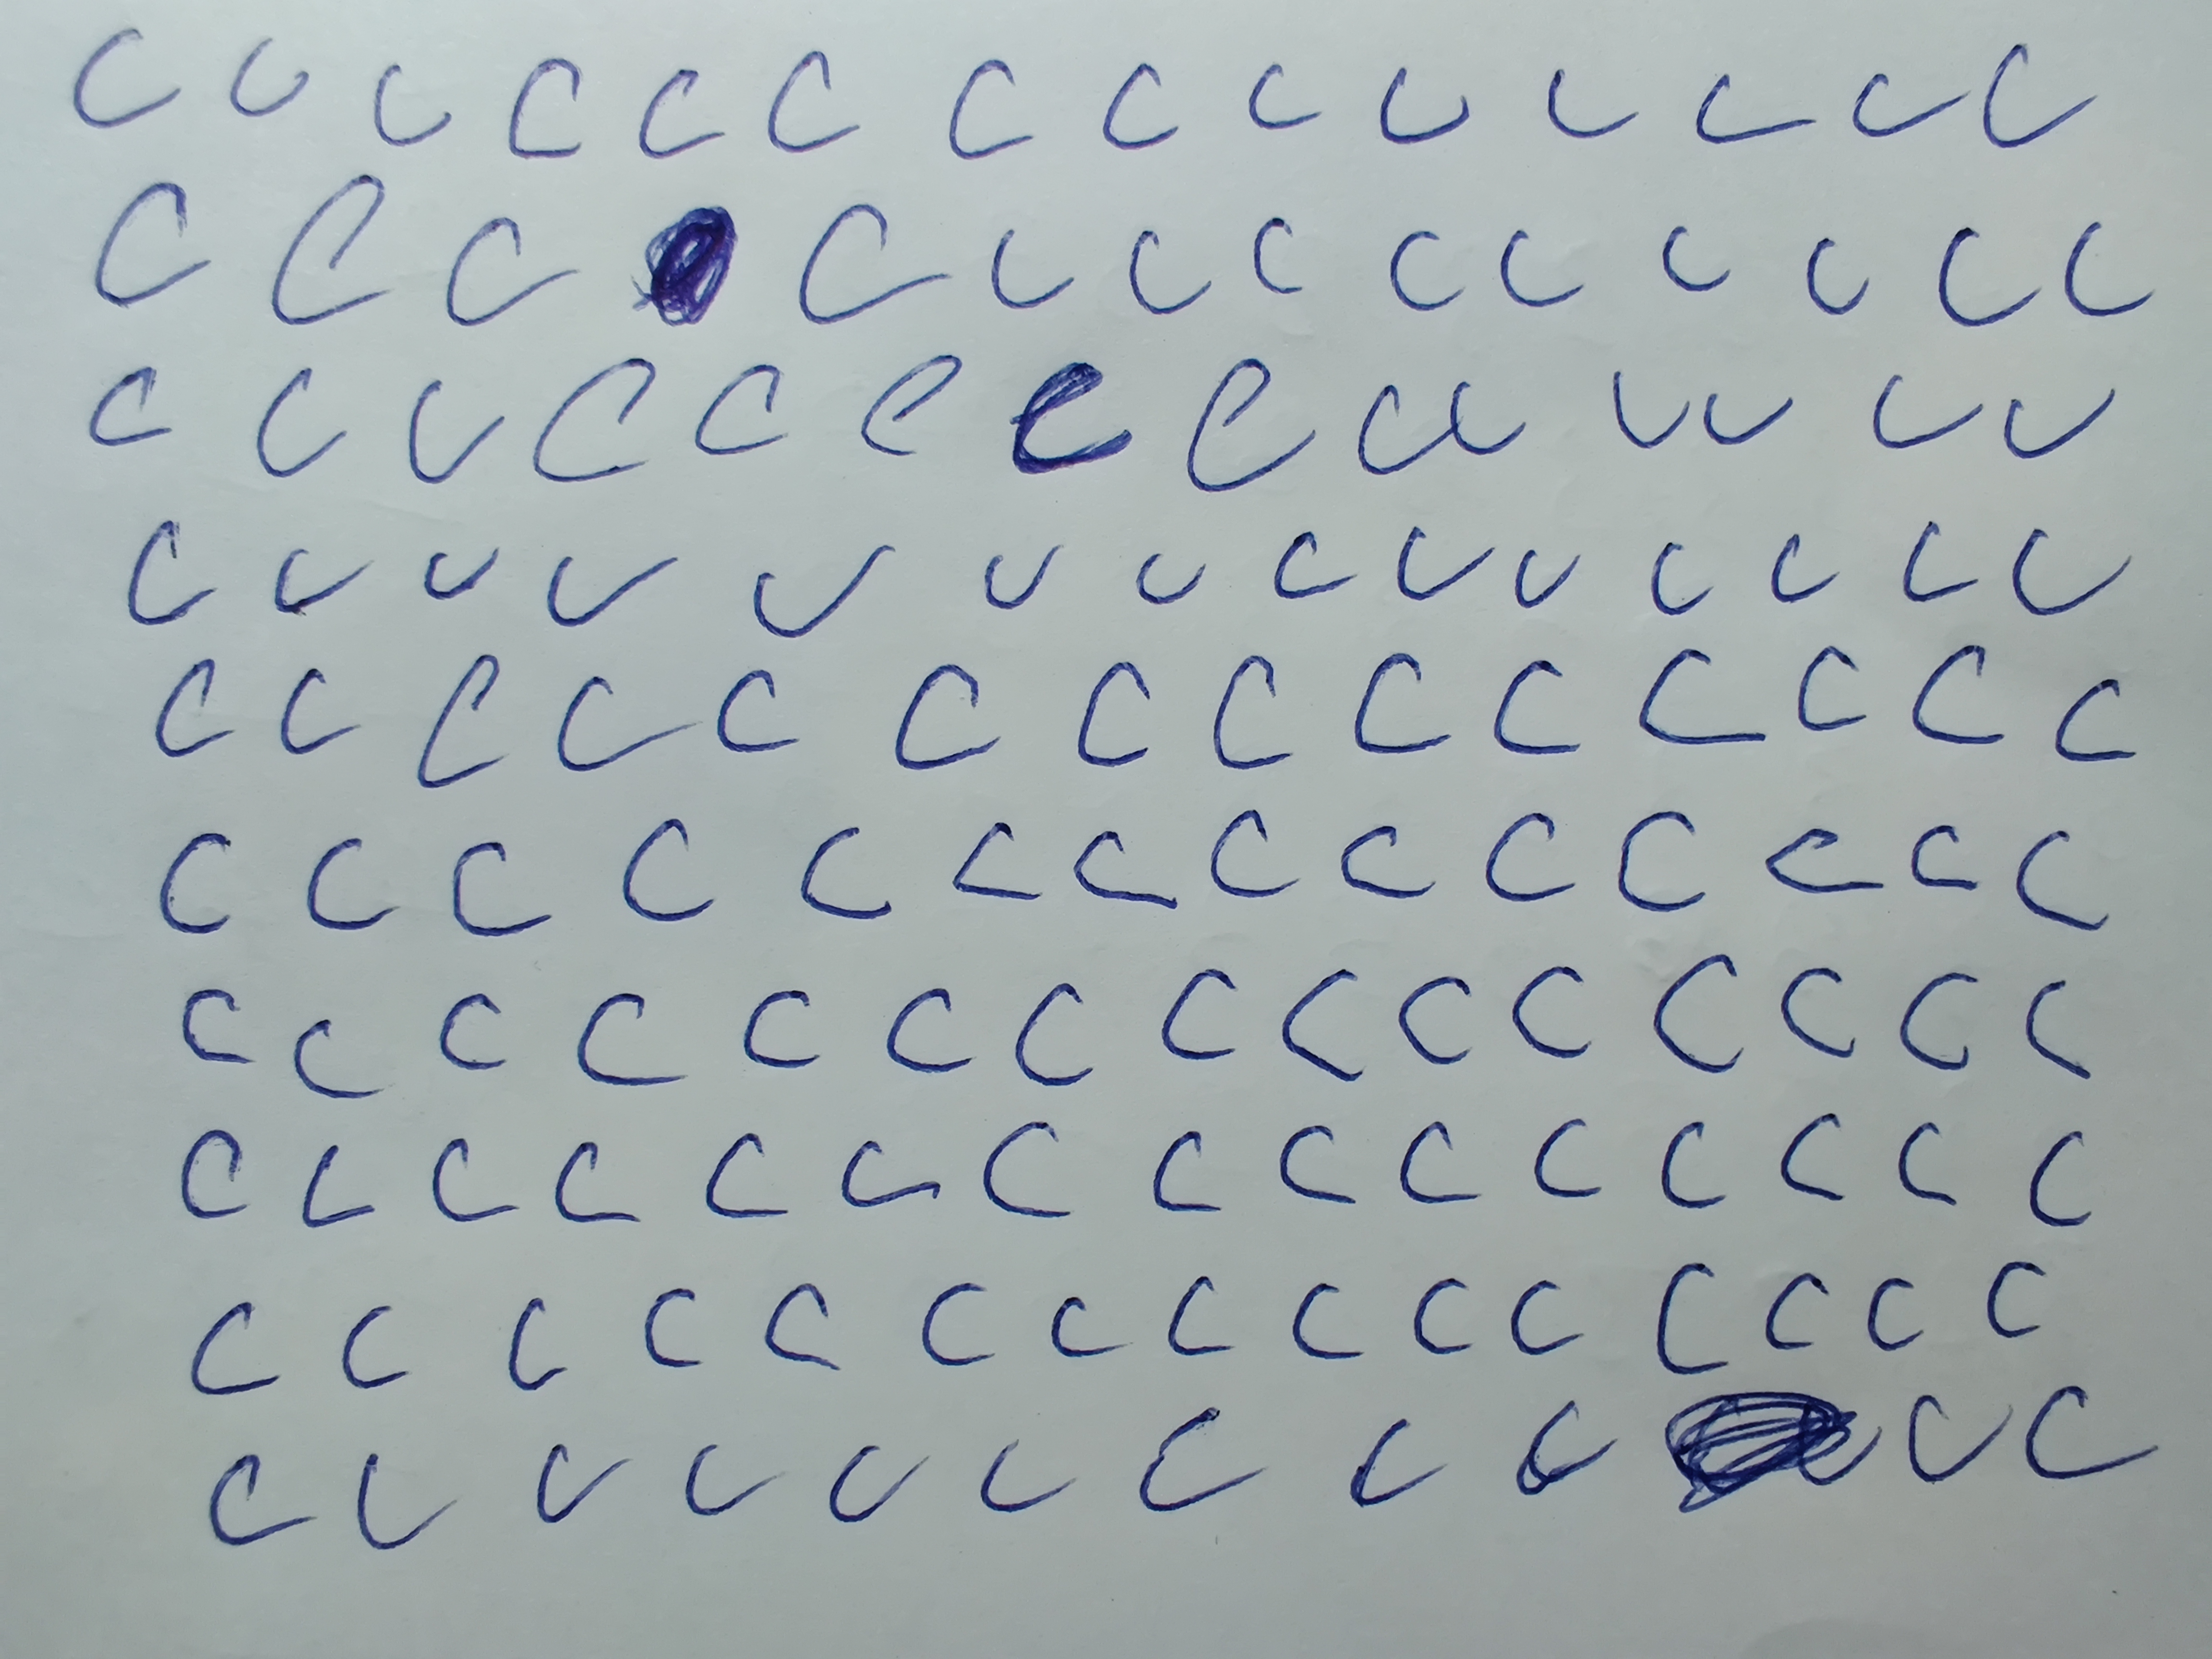 C C C C C C C C C C C C C C
C C C C C C C C C C C C C
C C C C C C C C C C C C C C
C C C C C C C C C C C C C C
C C C C C C C C C C C C C C
C C C C C C C C C C C C C C
C C C C C C C C C C C C C C C
C C C C C C C C C C C C C C C
C C C C C C C C C C C C C C C
C C C C C C C C C C C